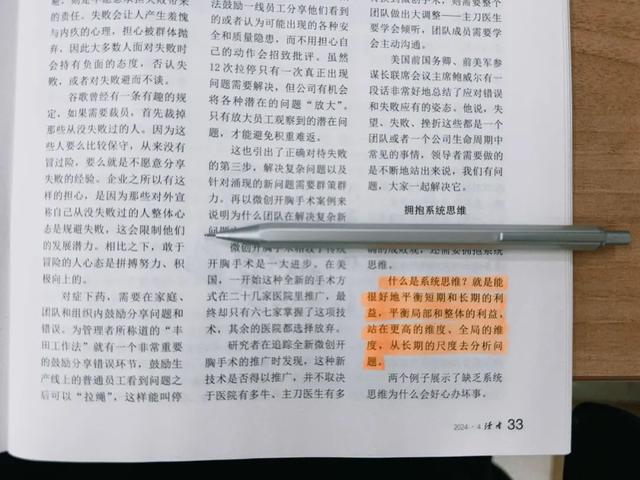 的责任。失败会让人产生羞愧
与内疚的心理，担心被群体抛
弃，因此大多数人面对失败时
会持有负面的态度，否认失
败，或者对失败避而不谈。
谷歌曾经有一条有趣的规
定，如果需要裁员，首先裁掉
那些从没失败过的人。因为这
些人要么比较保守，从来没有
冒过险，要么就是不愿意分享
失败的经验。企业之所以有这
样的担心，是因为那些对外宣
称自己从没失败过的人整体心
态是规避失败，这会限制他们
的发展潜力。相比之下，敢于
冒险的人心态是拼搏努力、积
极向上的。
对症下药，需要在家庭、
团队和组织内鼓励分享问题和
错误。为管理者所称道的“丰
田工作法”就有一个非常重要
的鼓励分享错误环节，鼓励生
产线上的普通员工看到问题之
后可以“拉绳”，这样能叫停
法鼓励一线员工分享他们看到
的或者认为可能出现的各种安
全和质量隐患，而不用担心自
己的动作会招致批评。虽然
12次拉停只有一次真正出现
问题需要解决，但公司有机会
将各种潜在的问题“放大”。
只有放大员工观察到的潜在问
题，才能避免积重难返。
这也引出了正确对待失败
的第三步，解决复杂问题以及
针对涌现的新问题需要群策群
力。再以微创开胸手术案例来
说明为什么团队在解决复杂新
开胸手术是一大进步。在美
国，一开始这种全新的手术方
式在二十几家医院里推广，最
终却只有六七家掌握了这项技
术，其余的医院都选择放弃。
研究者在追踪全新微创开
胸手术的推广时发现，这种新
技术是否得以推广，并不取决
于医院有多牛、主刀医生有多
团队做出大调整——主刀医生
要学会倾听，团队成员需要学
会主动沟通。
美国前国务卿、前美军参
谋长联席会议主席鲍威尔有一
段话非常好地总结了应对错误
和失败应有的姿态。他说，失
望、失败、挫折这些都是一个
团队或者一个公司生命周期中
常见的事情，领导者需要做的
是不断地站出来说，我们有问
题，大家一起解决它。
拥抱系统思维
维。
什么是系统思维？就是能
很好地平衡短期和长期的利
益，平衡局部和整体的利益，
站在更高的维度、全局的维
度，从长期的尺度去分析问
题。
两个例子展示了缺乏系统
思维为什么会好心办坏事。
2024·4 读者 33